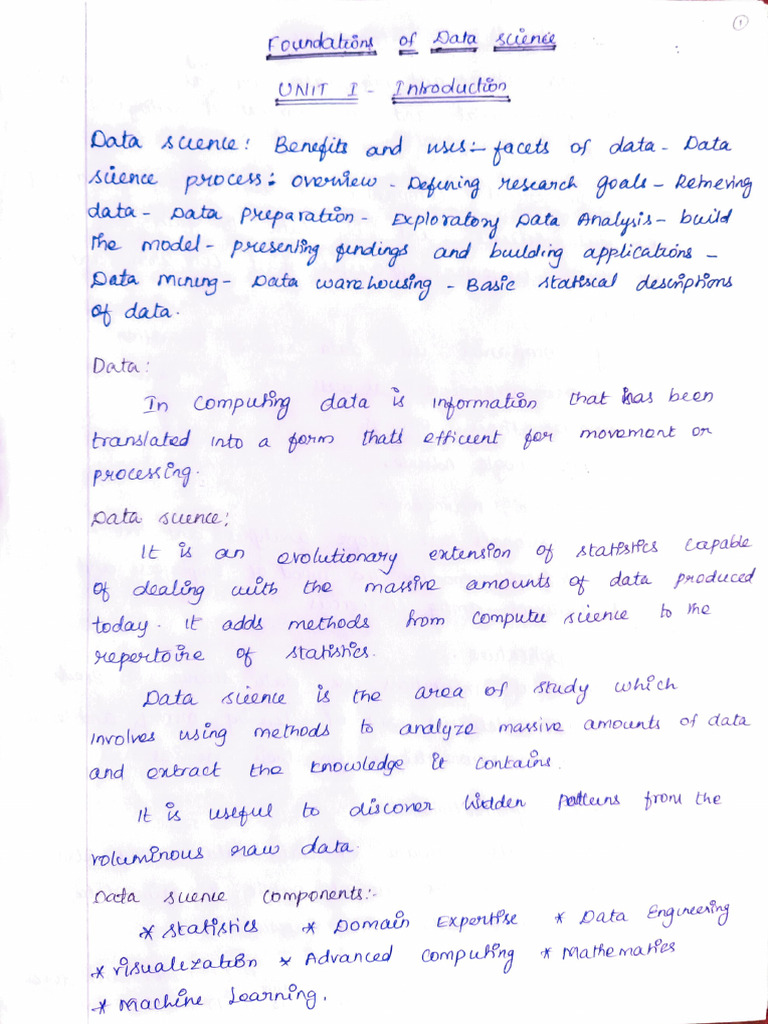 1
Foundations of Data Science
UNIT I - Introduction
Data science: Benefits and uses:- facets of data - Data
science process: overview - Defining research goals - Retrieving
data - Data preparation - Exploratory Data Analysis - build
the model - presenting findings and building applications -
Data Mining - Data warehousing - Basic statistical descriptions
of data.
Data:
In computing data is information that has been
translated into a form thats efficient for movement or
processing.
Data science:
It is an evolutionary extension of statistics capable
of dealing with the massive amounts of data produced
today. It adds methods from computer science to the
repertoire of statistics.
Data science is the area of study which
involves using methods to analyze massive amounts of data
and extract the knowledge it contains.
It is useful to discover hidden patterns from the
voluminous raw data.
Data science components:-
* Statistics * Domain Expertise * Data Engineering
* Visualization * Advanced computing * Mathematics
* Machine Learning.